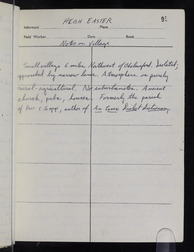 HIGH EASTER
9
Informant
Place
Field Worker
Date
Book
Notes on Village
Small village 6 miles Northwest of Chelmsford. Isolated,
approached by narrow lanes. Atmosphere is purely
rural agricultural. No suburbanites. Ancient
church, pubs, houses. Formerly the parish
of Rev. E. Gepp, author of An Essex Dialect Dictionary